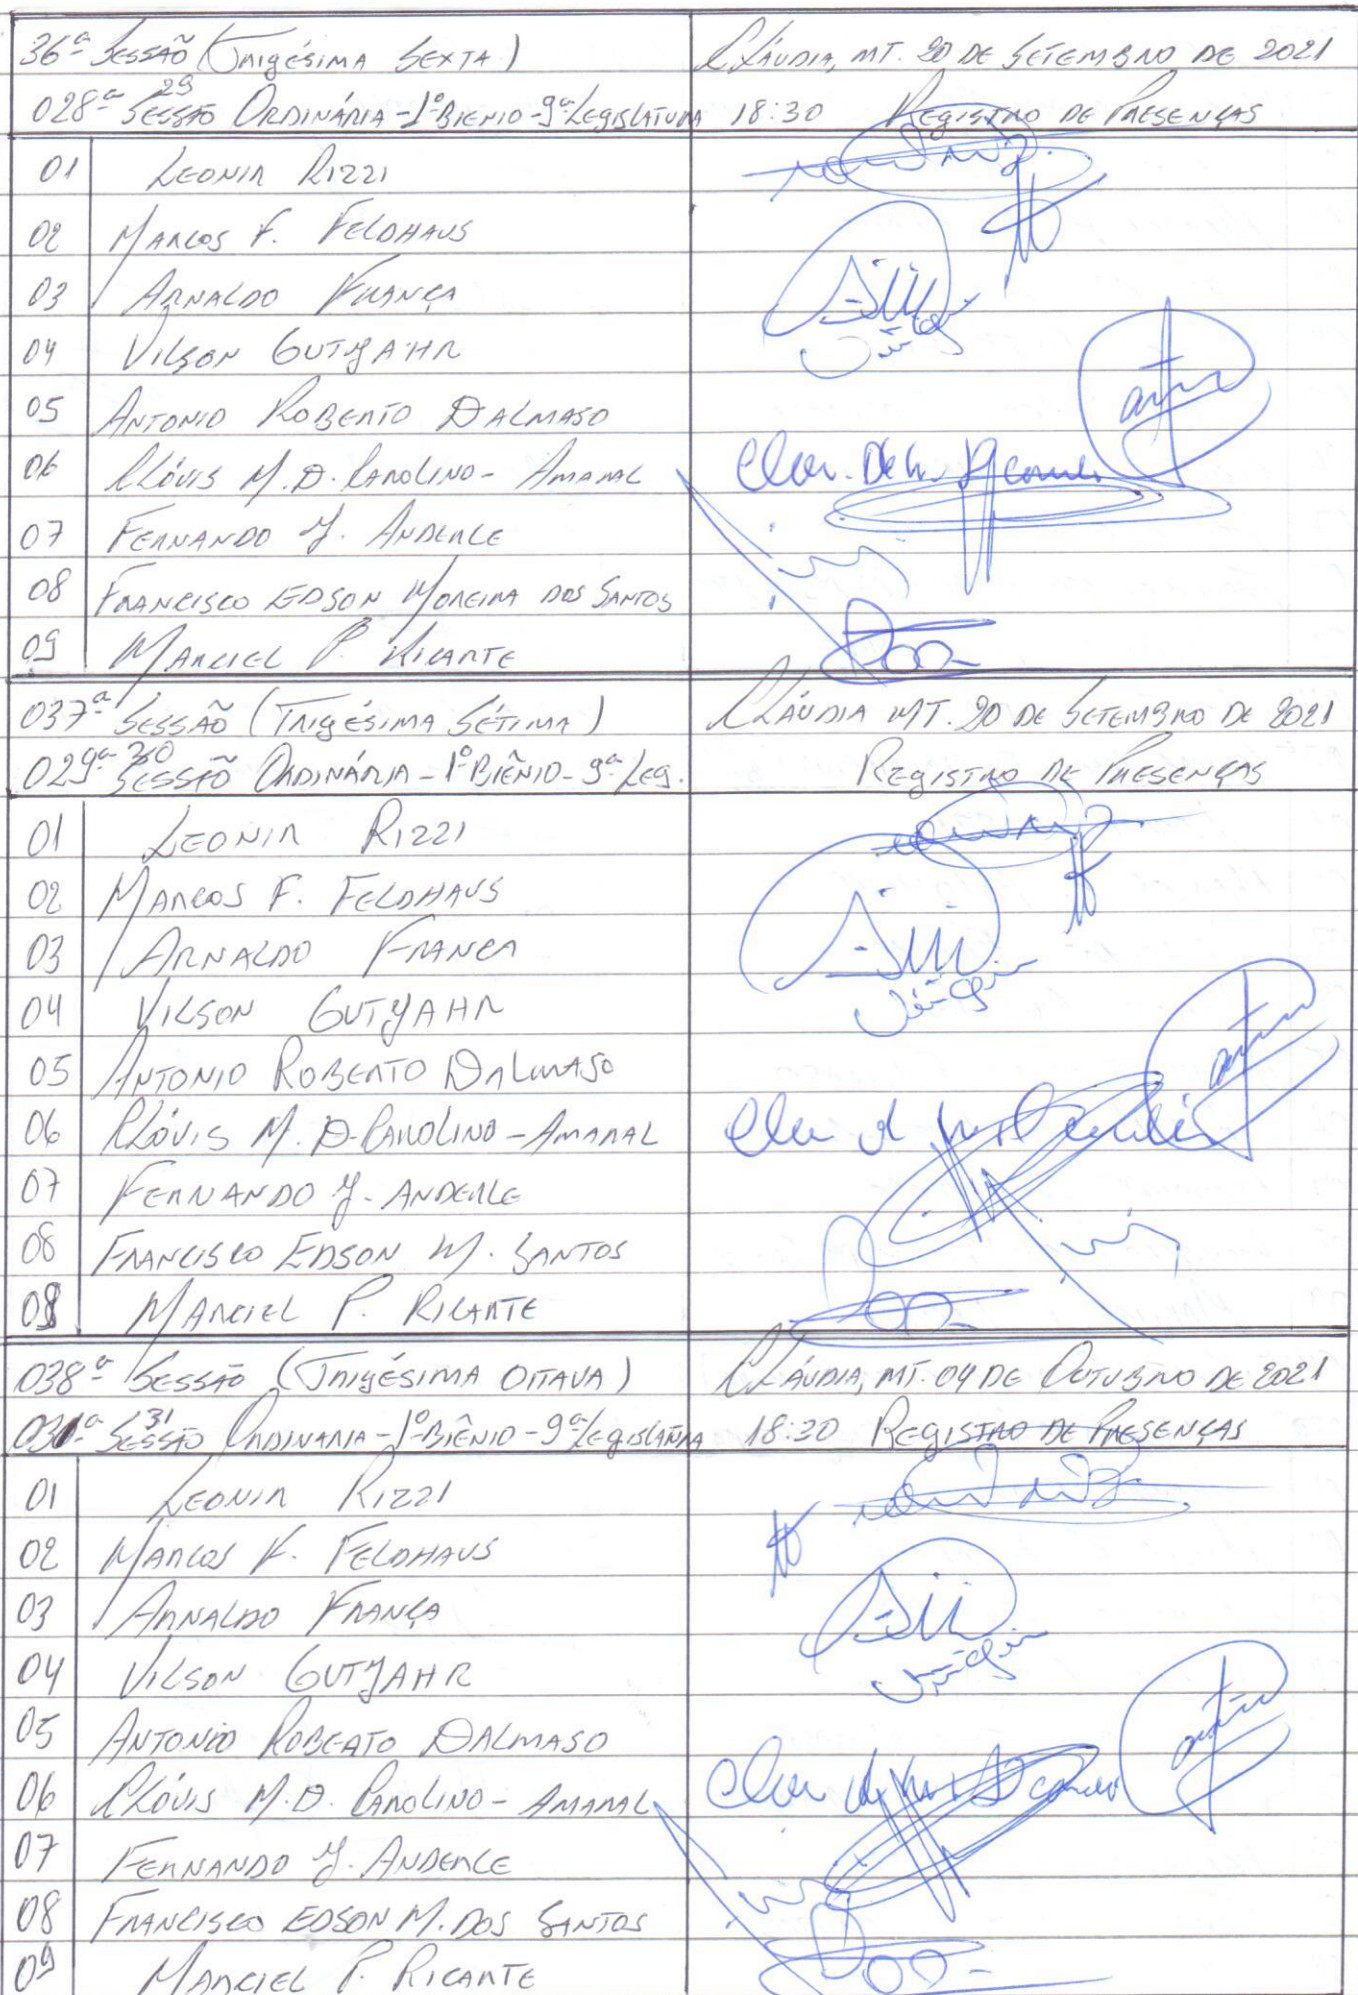 36ª Sessão (Trigésima Sexta)
Cláudia, MT. 20 de Setembro de 2021
29
028ª Sessão Ordinária - 1º Biênio - 9ª Legislatura
18:30 Registro de Presenças
01 Leonir Rizzi
02 Marcos F. Feldhaus
03 Arnaldo França
04 Vilson Gutjahr
05 Antonio Roberto Dalmaso
06 Clóvis M. D. Carolino - Amaral
07 Fernando J. Anderle
08 Francisco Edson Moreira dos Santos
09 Marciel P. Ricarte
037ª Sessão (Trigésima Sétima)
Cláudia MT. 20 de Setembro de 2021
30
029ª Sessão Ordinária - 1º Biênio - 9ª Leg.
Registro de Presenças
01 Leonir Rizzi
02 Marcos F. Feldhaus
03 Arnaldo Franca
04 Vilson Gutjahr
05 Antonio Roberto Dalmaso
06 Clóvis M. D. Carolino - Amaral
07 Fernando J. Anderle
08 Francisco Edson M. Santos
09 Marciel P. Ricarte
038ª Sessão (Trigésima Oitava)
Cláudia, MT. 04 de Outubro de 2021
31
Sessão Ordinaria - 1º Biênio - 9ª Legislatura
18:30 Registro de Presenças
01 Leonir Rizzi
02 Marcos F. Feldhaus
03 Arnaldo França
04 Vilson Gutjahr
05 Antonio Roberto Dalmaso
06 Clóvis M. D. Carolino - Amaral
07 Fernando J. Anderle
08 Francisco Edson M. dos Santos
09 Marciel P. Ricarte